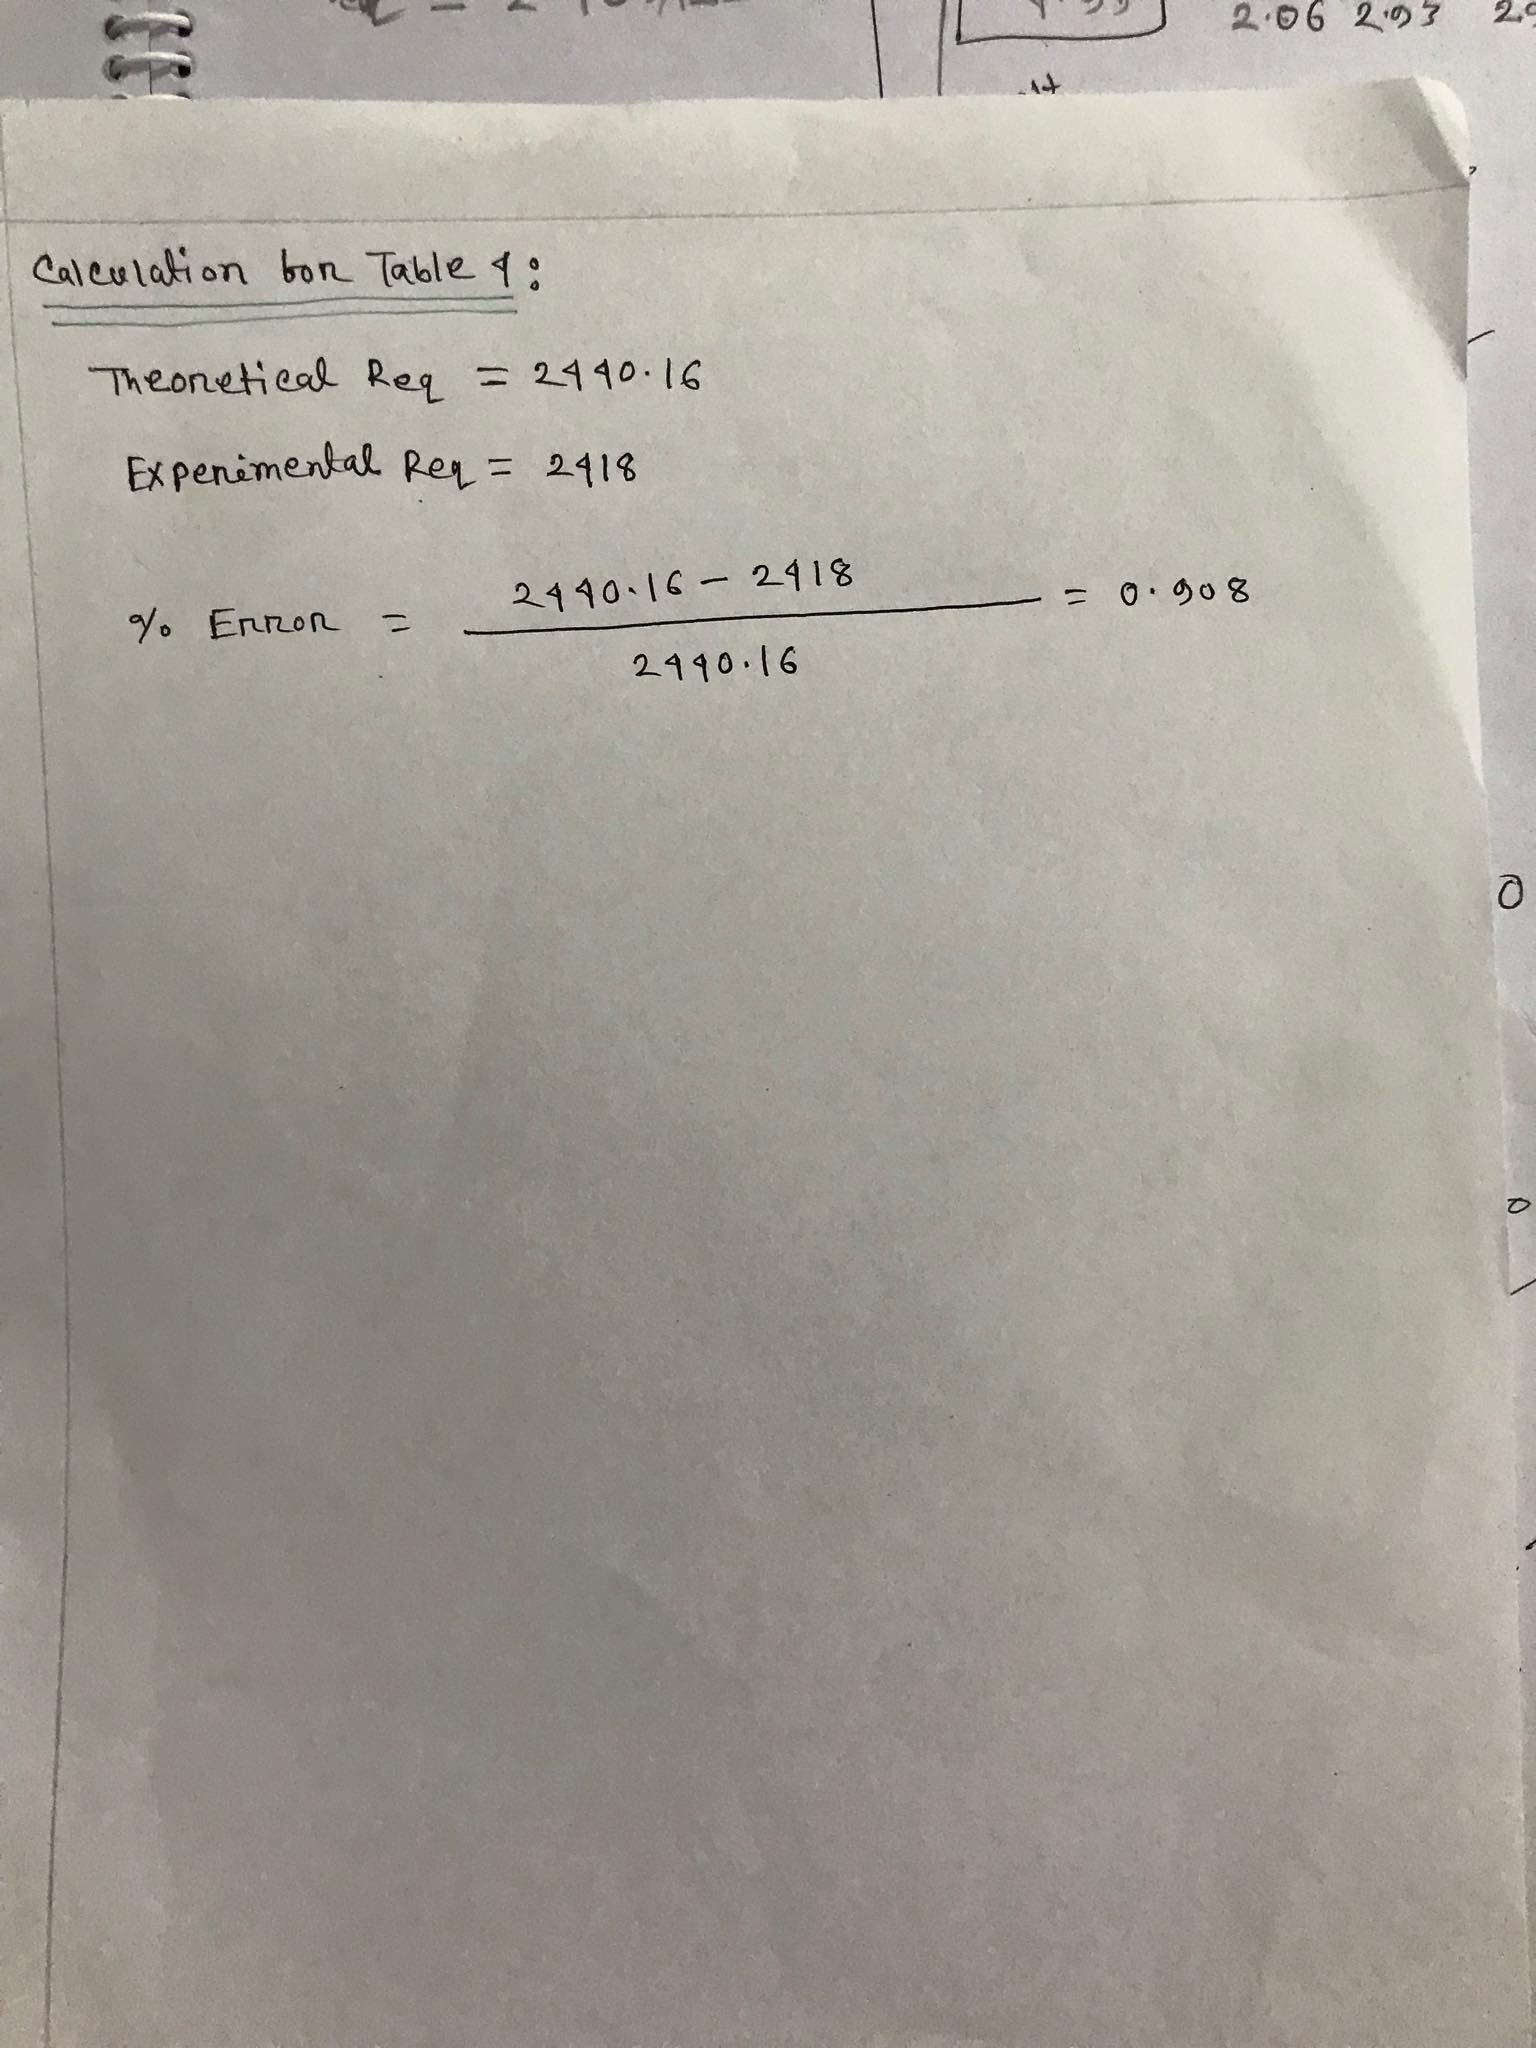 2.06 2.93
Calculation for Table 4:
Theoretical Req = 2440.16
Experimental Req = 2418
% Error = 2440.16 - 2418 / 2440.16 = 0.908